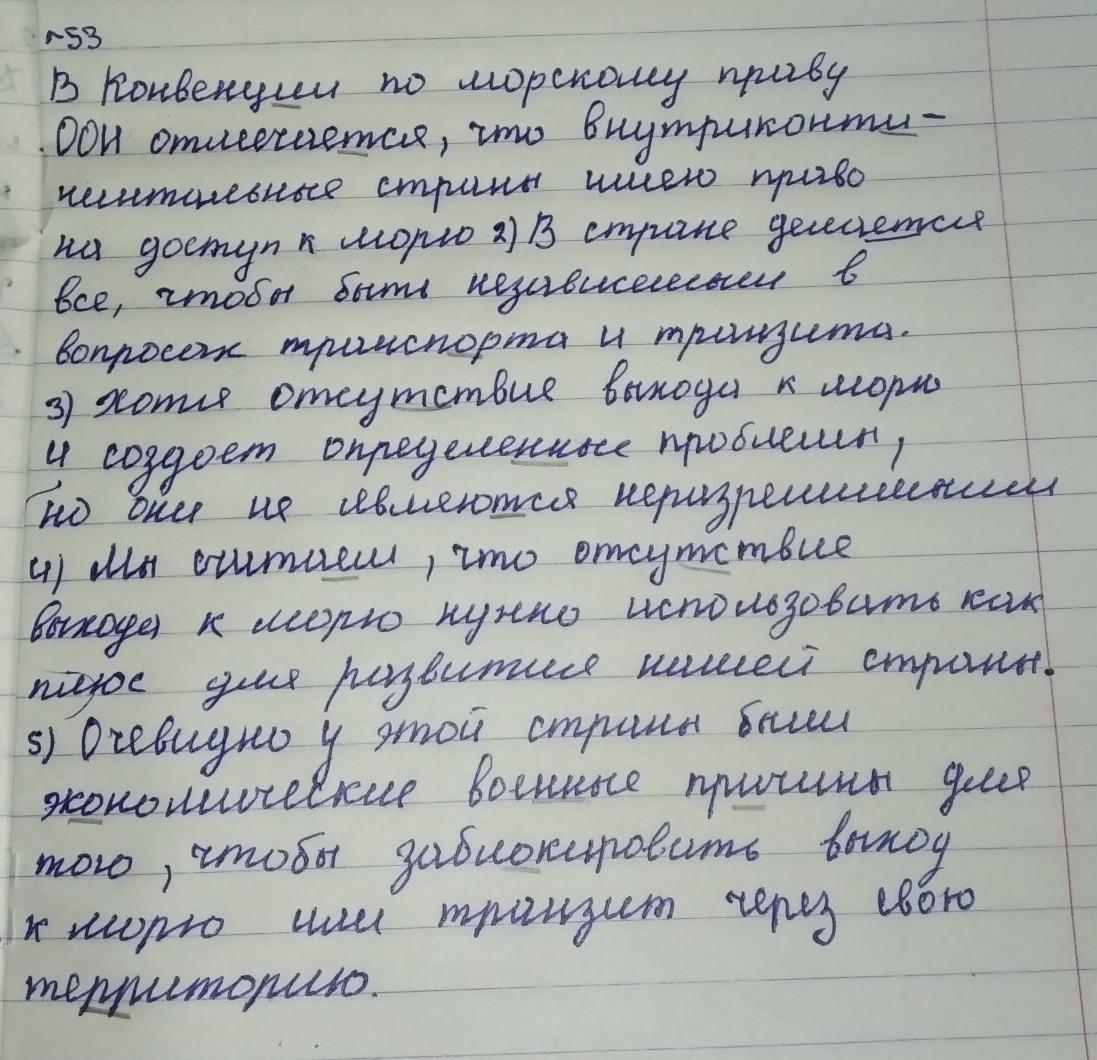 №53
В Конвенции по морскому праву
ООН отмечается, что внутриконти-
нинтальные страны имею право
на доступ к морю 2) В стране делается
все, чтобы быть независимыми в
вопросах транспорта и транзита.
3) Хотя отсутствие выхода к морю
и создает определенные проблемы,
но они не являются неразрешимыми
4) Мы считаем, что отсутствие
выхода к морю нужно использовать как
плюс для развития нашей страны.
5) Очевидно у этой страны были
экономические военные причины для
того, чтобы заблокировать выход
к морю или транзит через свою
территорию.